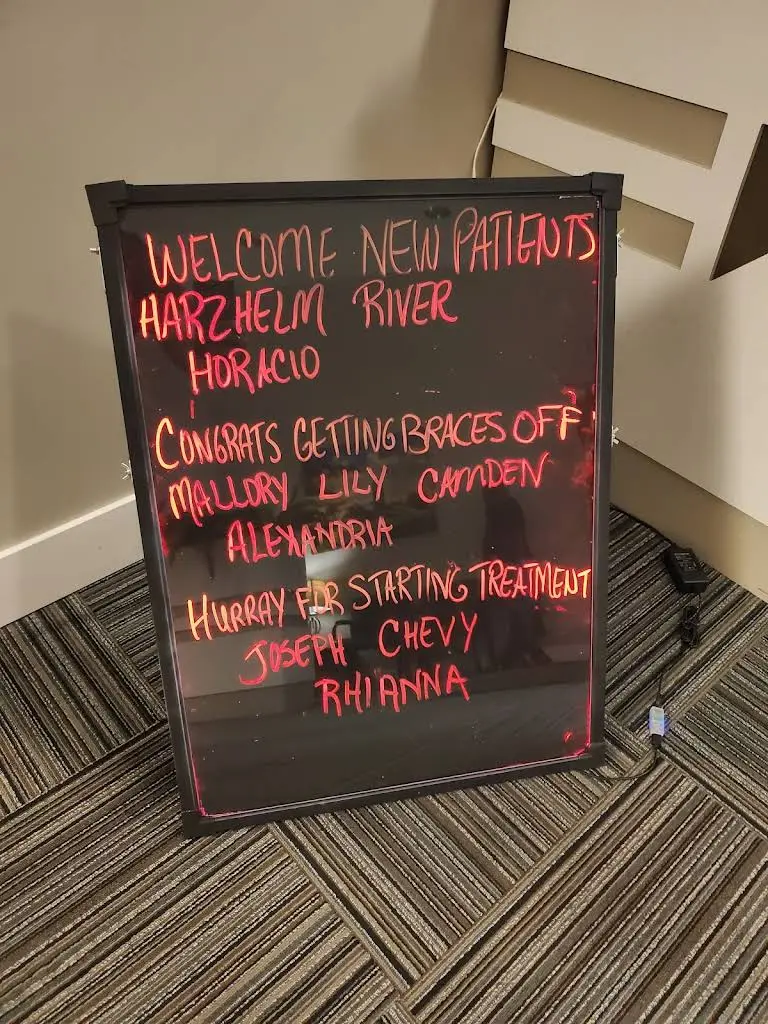 WELCOME NEW PATIENTS
HARZHELM RIVER
HORACIO
CONGRATS GETTING BRACES OFF
MALLORY LILY CAMDEN
ALEXANDRIA
HURRAY FOR STARTING TREATMENT
JOSEPH CHEVY
RHIANNA